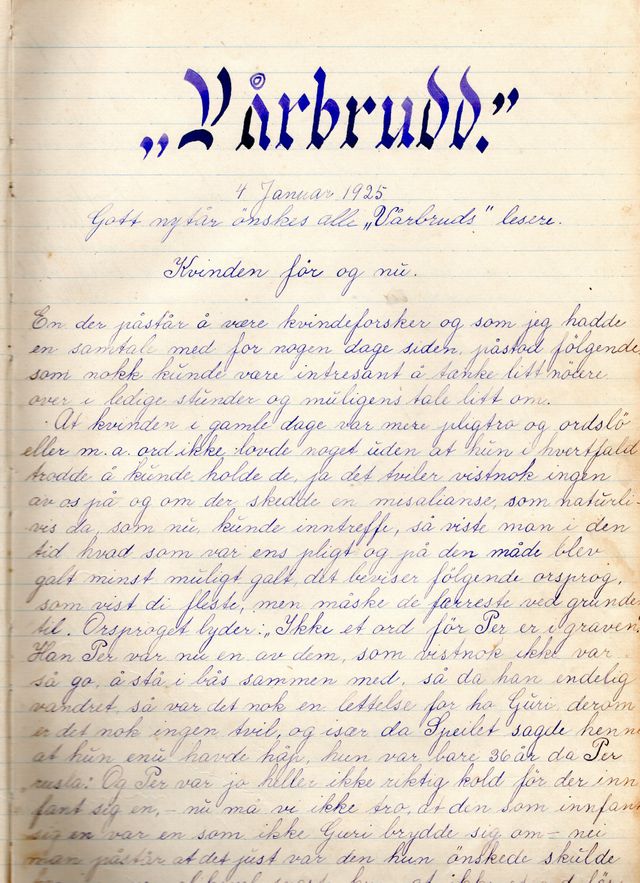 „Vårbrudd.”
4 Januar 1925
Gott nytår önskes alle „Vårbruds” lesere.
Kvinden för og nu.
En der påstår å være kvindeforsker og som jeg hadde
en samtale med for nogen dage siden, påstod fölgende
som nokk kunde være intresant å tænke litt nöiere
over i ledige stunder og muligens tale litt om.
At kvinden i gamle dage var mere pligtro og ordslö
eller m. a. ord ikke lovde noget uden at hun i hvertfald
trodde å kunde holde de, ja det tviler vistnok ingen
av os på og om der skedde en misalianse, som naturli-
vis da, som nu, kunde inntreffe, så viste man i den
tid hvad som var ens pligt og på den måde blev
galt minst muligt galt, det beviser fölgende orsprog,
som vist di fleste, men måske de færreste ved grunde
til. Orsproget lyder: „Ikke et ord för Per er i graven”
Han Per var nu en av dem, som vistnok ikke var
så go, å stå i bås sammen med, så da han endelig
vandret, så var det nok en lettelse for ho Guri, derom
er det nok ingen tvil, og især da Speilet sagde henne
at hun enu havde håp, hun var bare 36 år da Per
rusla: Og Per var jo heller ikke riktig kold för der inn
fant sig en, – nu må vi ikke tro, at den som innfant
sig en var en som ikke Guri brydde sig om – nei
man påstår at det just var den hun önskede skulde